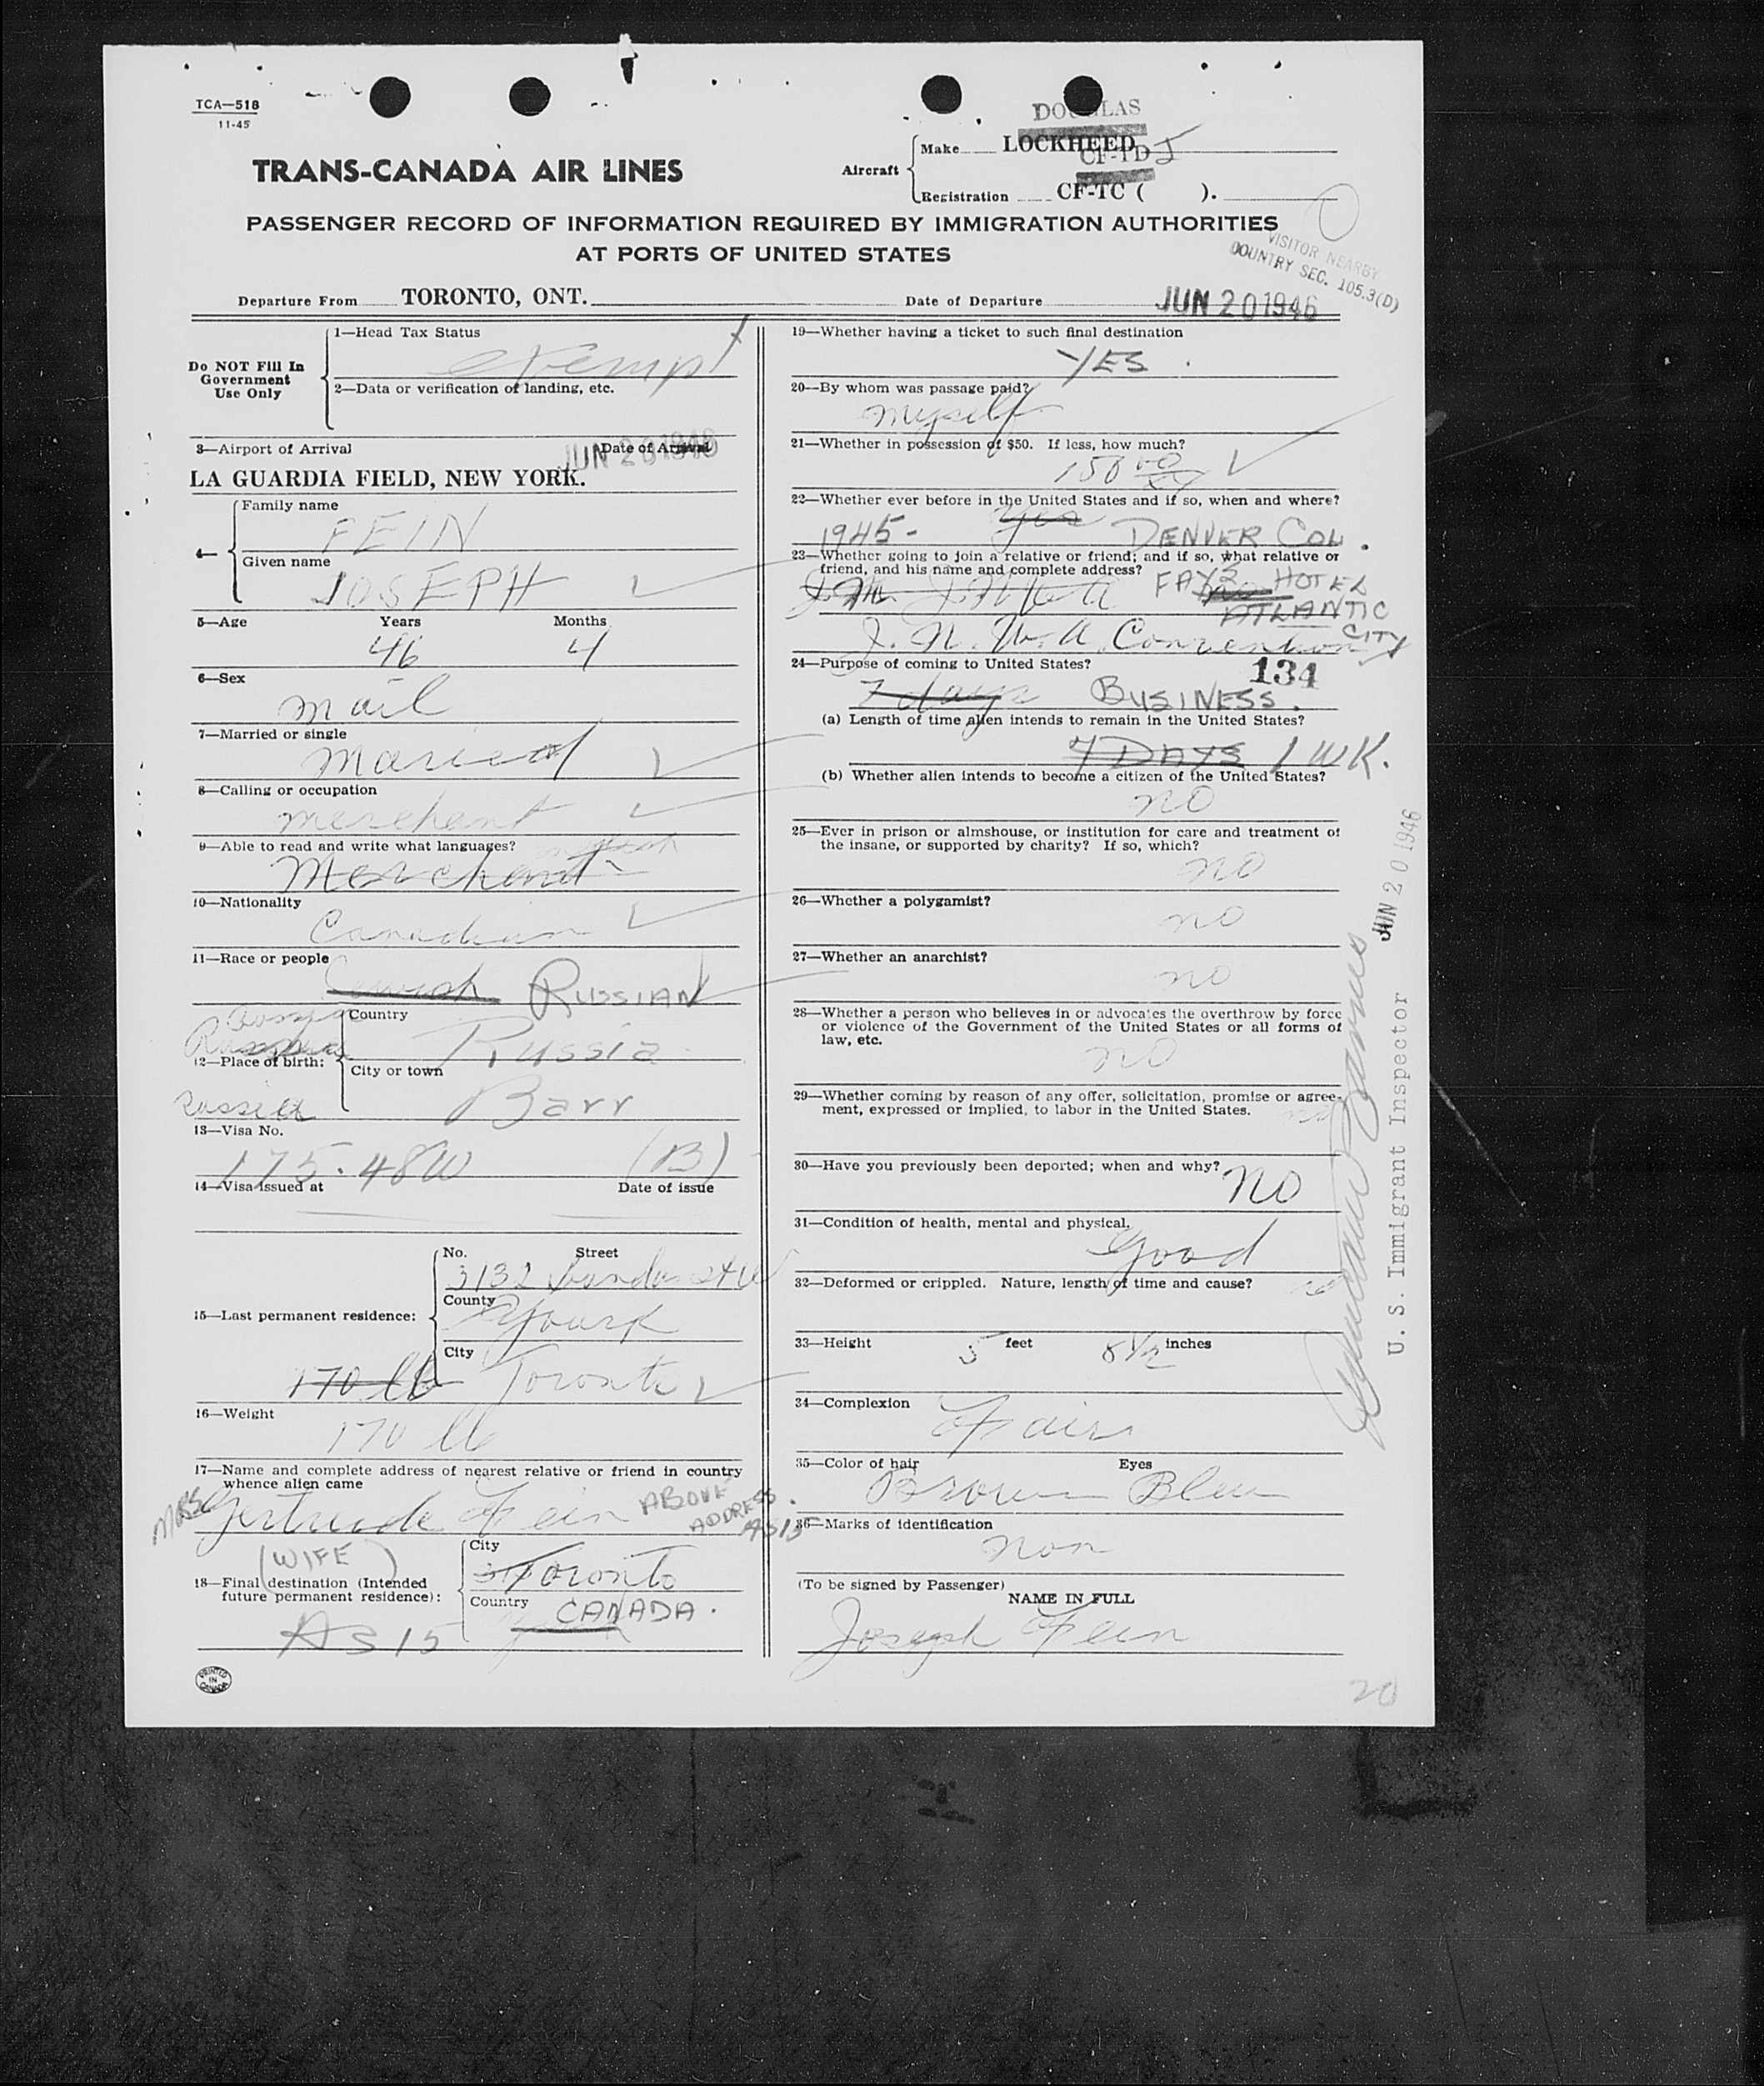 TCA—518
11-45
DOUGLAS
TRANS-CANADA AIR LINES
Aircraft
Make LOCKHEED
CF-TDJ
Registration CF-TC ( ).
PASSENGER RECORD OF INFORMATION REQUIRED BY IMMIGRATION AUTHORITIES
AT PORTS OF UNITED STATES
VISITOR NEARBY
COUNTRY SEC. 105.3(D)
Departure From TORONTO, ONT. Date of Departure JUN 20 1946
Do NOT Fill In
Government
Use Only
1—Head Tax Status
exempt
2—Data or verification of landing, etc.
3—Airport of Arrival Date of Arrival
JUN 20 1946
LA GUARDIA FIELD, NEW YORK.
4—
Family name
FEIN
Given name
JOSEPH
5—Age Years Months
46 4
6—Sex
mail
7—Married or single
Maried
8—Calling or occupation
merchant
9—Able to read and write what languages?
Merchant
10—Nationality
Canadian
11—Race or people
Jewish RUSSIAN
Russia
12—Place of birth:
Country
Russia
City or town
Barr
Russia
13—Visa No.
175.48W (B)
14—Visa issued at Date of issue
15—Last permanent residence:
No. Street
County
Yourk
City
170 lb Toronto
16—Weight
170 lb
17—Name and complete address of nearest relative or friend in country
whence alien came
MRS Gertrude Fein ABOVE
ADDRESS.
AS 15
(WIFE)
18—Final destination (Intended
future permanent residence):
City
Toronto
Country
CANADA.
AS 15
PRINTED
IN
CANADA
19—Whether having a ticket to such final destination
YES.
20—By whom was passage paid?
myself
21—Whether in possession of $50. If less, how much?
150 00
22—Whether ever before in the United States and if so, when and where?
yes
1945- DENVER COL.
23—Whether going to join a relative or friend; and if so, what relative or
friend, and his name and complete address?
FAYS HOTEL
ATLANTIC
CITY
J. N. W. A. Convention
24—Purpose of coming to United States?
134
7 days BUSINESS.
(a) Length of time alien intends to remain in the United States?
7 DAYS 1 WK.
(b) Whether alien intends to become a citizen of the United States?
no
25—Ever in prison or almshouse, or institution for care and treatment of
the insane, or supported by charity? If so, which?
no
26—Whether a polygamist?
no
27—Whether an anarchist?
no
28—Whether a person who believes in or advocates the overthrow by force
or violence of the Government of the United States or all forms of
law, etc.
no
29—Whether coming by reason of any offer, solicitation, promise or agree-
ment, expressed or implied, to labor in the United States.
no
30—Have you previously been deported; when and why?
No
31—Condition of health, mental and physical.
Good
32—Deformed or crippled. Nature, length of time and cause?
no
33—Height 5 feet 8 1/2 inches
34—Complexion
Fair
35—Color of hair Eyes
Brown Blew
36—Marks of identification
non
(To be signed by Passenger)
NAME IN FULL
Joseph Fein
20
JUN 20 1946
U. S. Immigrant Inspector